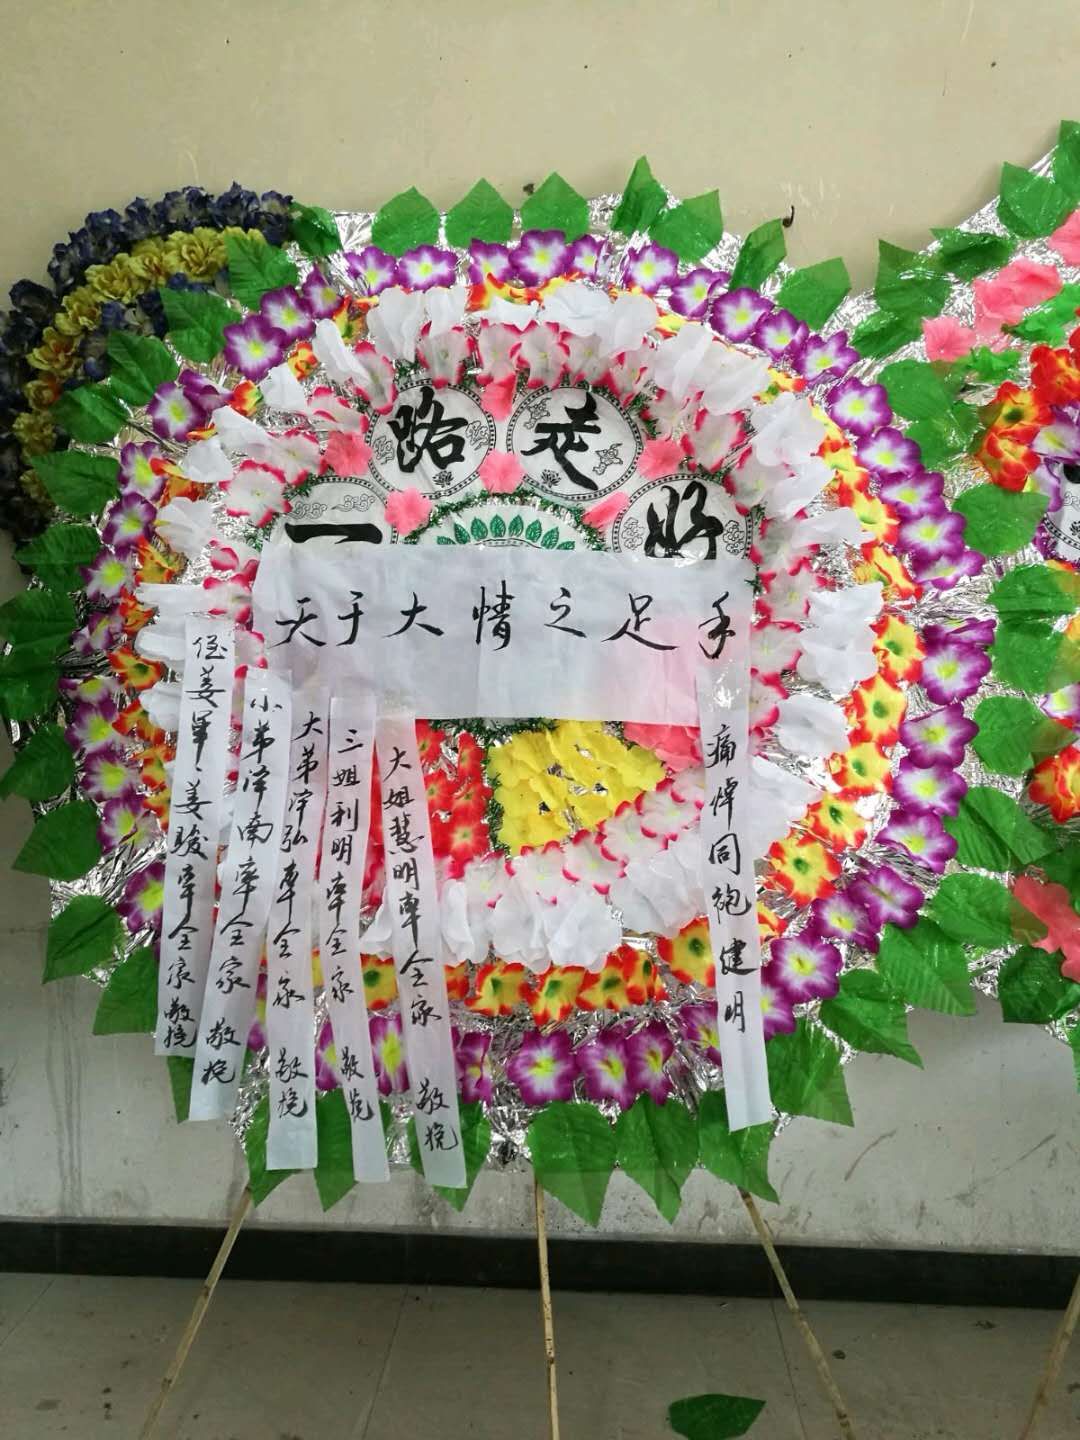 一路走好
手足之情大于天
痛悼同袍建明
大姐慧明率全家 敬挽
三姐利明率全家 敬挽
大弟泽弘率全家 敬挽
小弟泽南率全家 敬挽
侄姜军、姜骏率全家敬挽